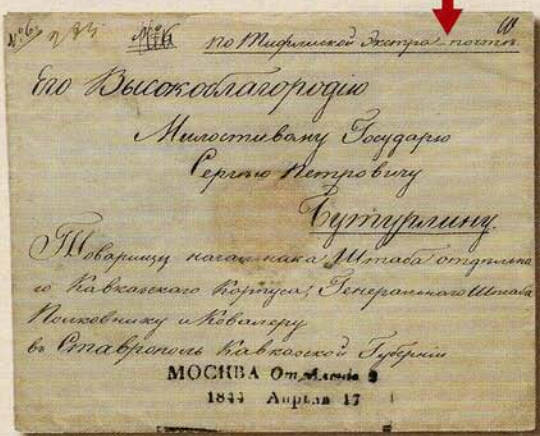 № 6. № 6
по Тифлиской Экстра-почтѣ
Его Высокоблагородію
Милостивому Государю
Сергѣю Петровичу
Бутурлину.
Товарищу начальника Штаба отдѣльна
го Кавказского Корпуса, Генеральнаго Штаба
Полковнику и Кавалеру
въ Ставрополь Кавказской Губерніи
МОСКВА Отдѣленіе 2
1844 Апрѣля 17